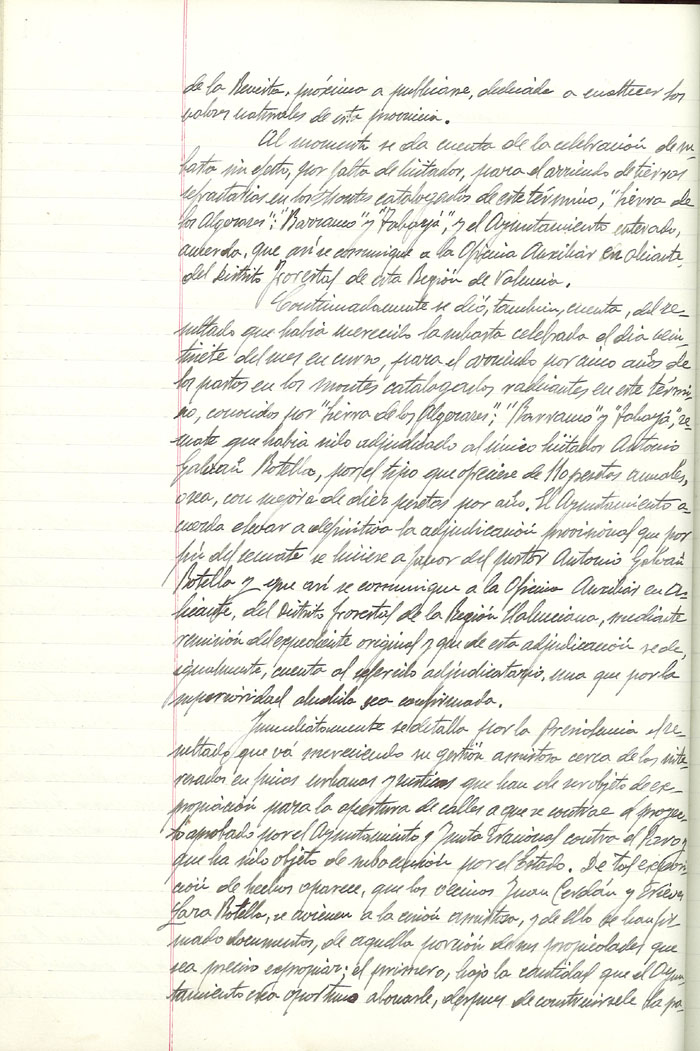 de la Revista, próxima a publicarse, dedicada a enaltecer los
valores naturales de esta provincia.
Al momento se da cuenta de la celebración de su-
basta sin efecto, por falta de licitador, para el arriendo de tierras
refractarias en los Montes catalogados de este término, "Sierra de
los Algezares"; "Barranco" y "Tabayá", y el Ayuntamiento enterado,
acuerda, que así se comunique a la Oficina Auxiliar en Alicante,
del Distrito Forestal de esta Región de Valencia.
Continuadamente se dió, también, cuenta, del re-
sultado que había merecido la subasta celebrada el día vein-
tisiete del mes en curso, para el arriendo por cinco años de
los pastos en los montes catalogados radicantes en este térmi-
no, conocidos por "Sierra de los Algezares"; "Barranco" y "Tabayá", re-
mate que había sido adjudicado al único licitador Antonio
Galván Botella, por el tipo que ofreciere de pesetas anuales,
o sea, con mejora de diez pesetas por año. El Ayuntamiento a-
cuerda elevar a definitiva la adjudicación provisional que por
fin del remate se hiciese a favor del postor Antonio Galván
Botella y que así se comunique a la Oficina Auxiliar en A-
licante, del Distrito forestal de la Región Valenciana, mediante
remisión del expediente original y que de esta adjudicación se dé,
igualmente, cuenta al referido adjudicatario, una que por la
superioridad aludida sea confirmada.
Inmediatamente se detalla por la Presidencia el re-
sultado que vá mereciendo su gestión amistosa cerca de los inte-
resados en fincas urbanas y rústicas que han de ser objeto de ex-
propiación para la apertura de calles a que se contrae el proyec-
to aprobado por el Ayuntamiento y Junta Nacional contra el Paro y
que ha sido objeto de subvención por el Estado. De tal exposi-
ción de hechos aparece, que los vecinos Juan Cerdán y
Botella, se avienen a la cesión amistosa, y de ello se han fir-
mado documentos, de aquella porción de sus propiedades que
sea preciso expropiar; el primero, bajo la cantidad que el Ayun-
tamiento crea oportuno abonarle, después de construírsele la pa-